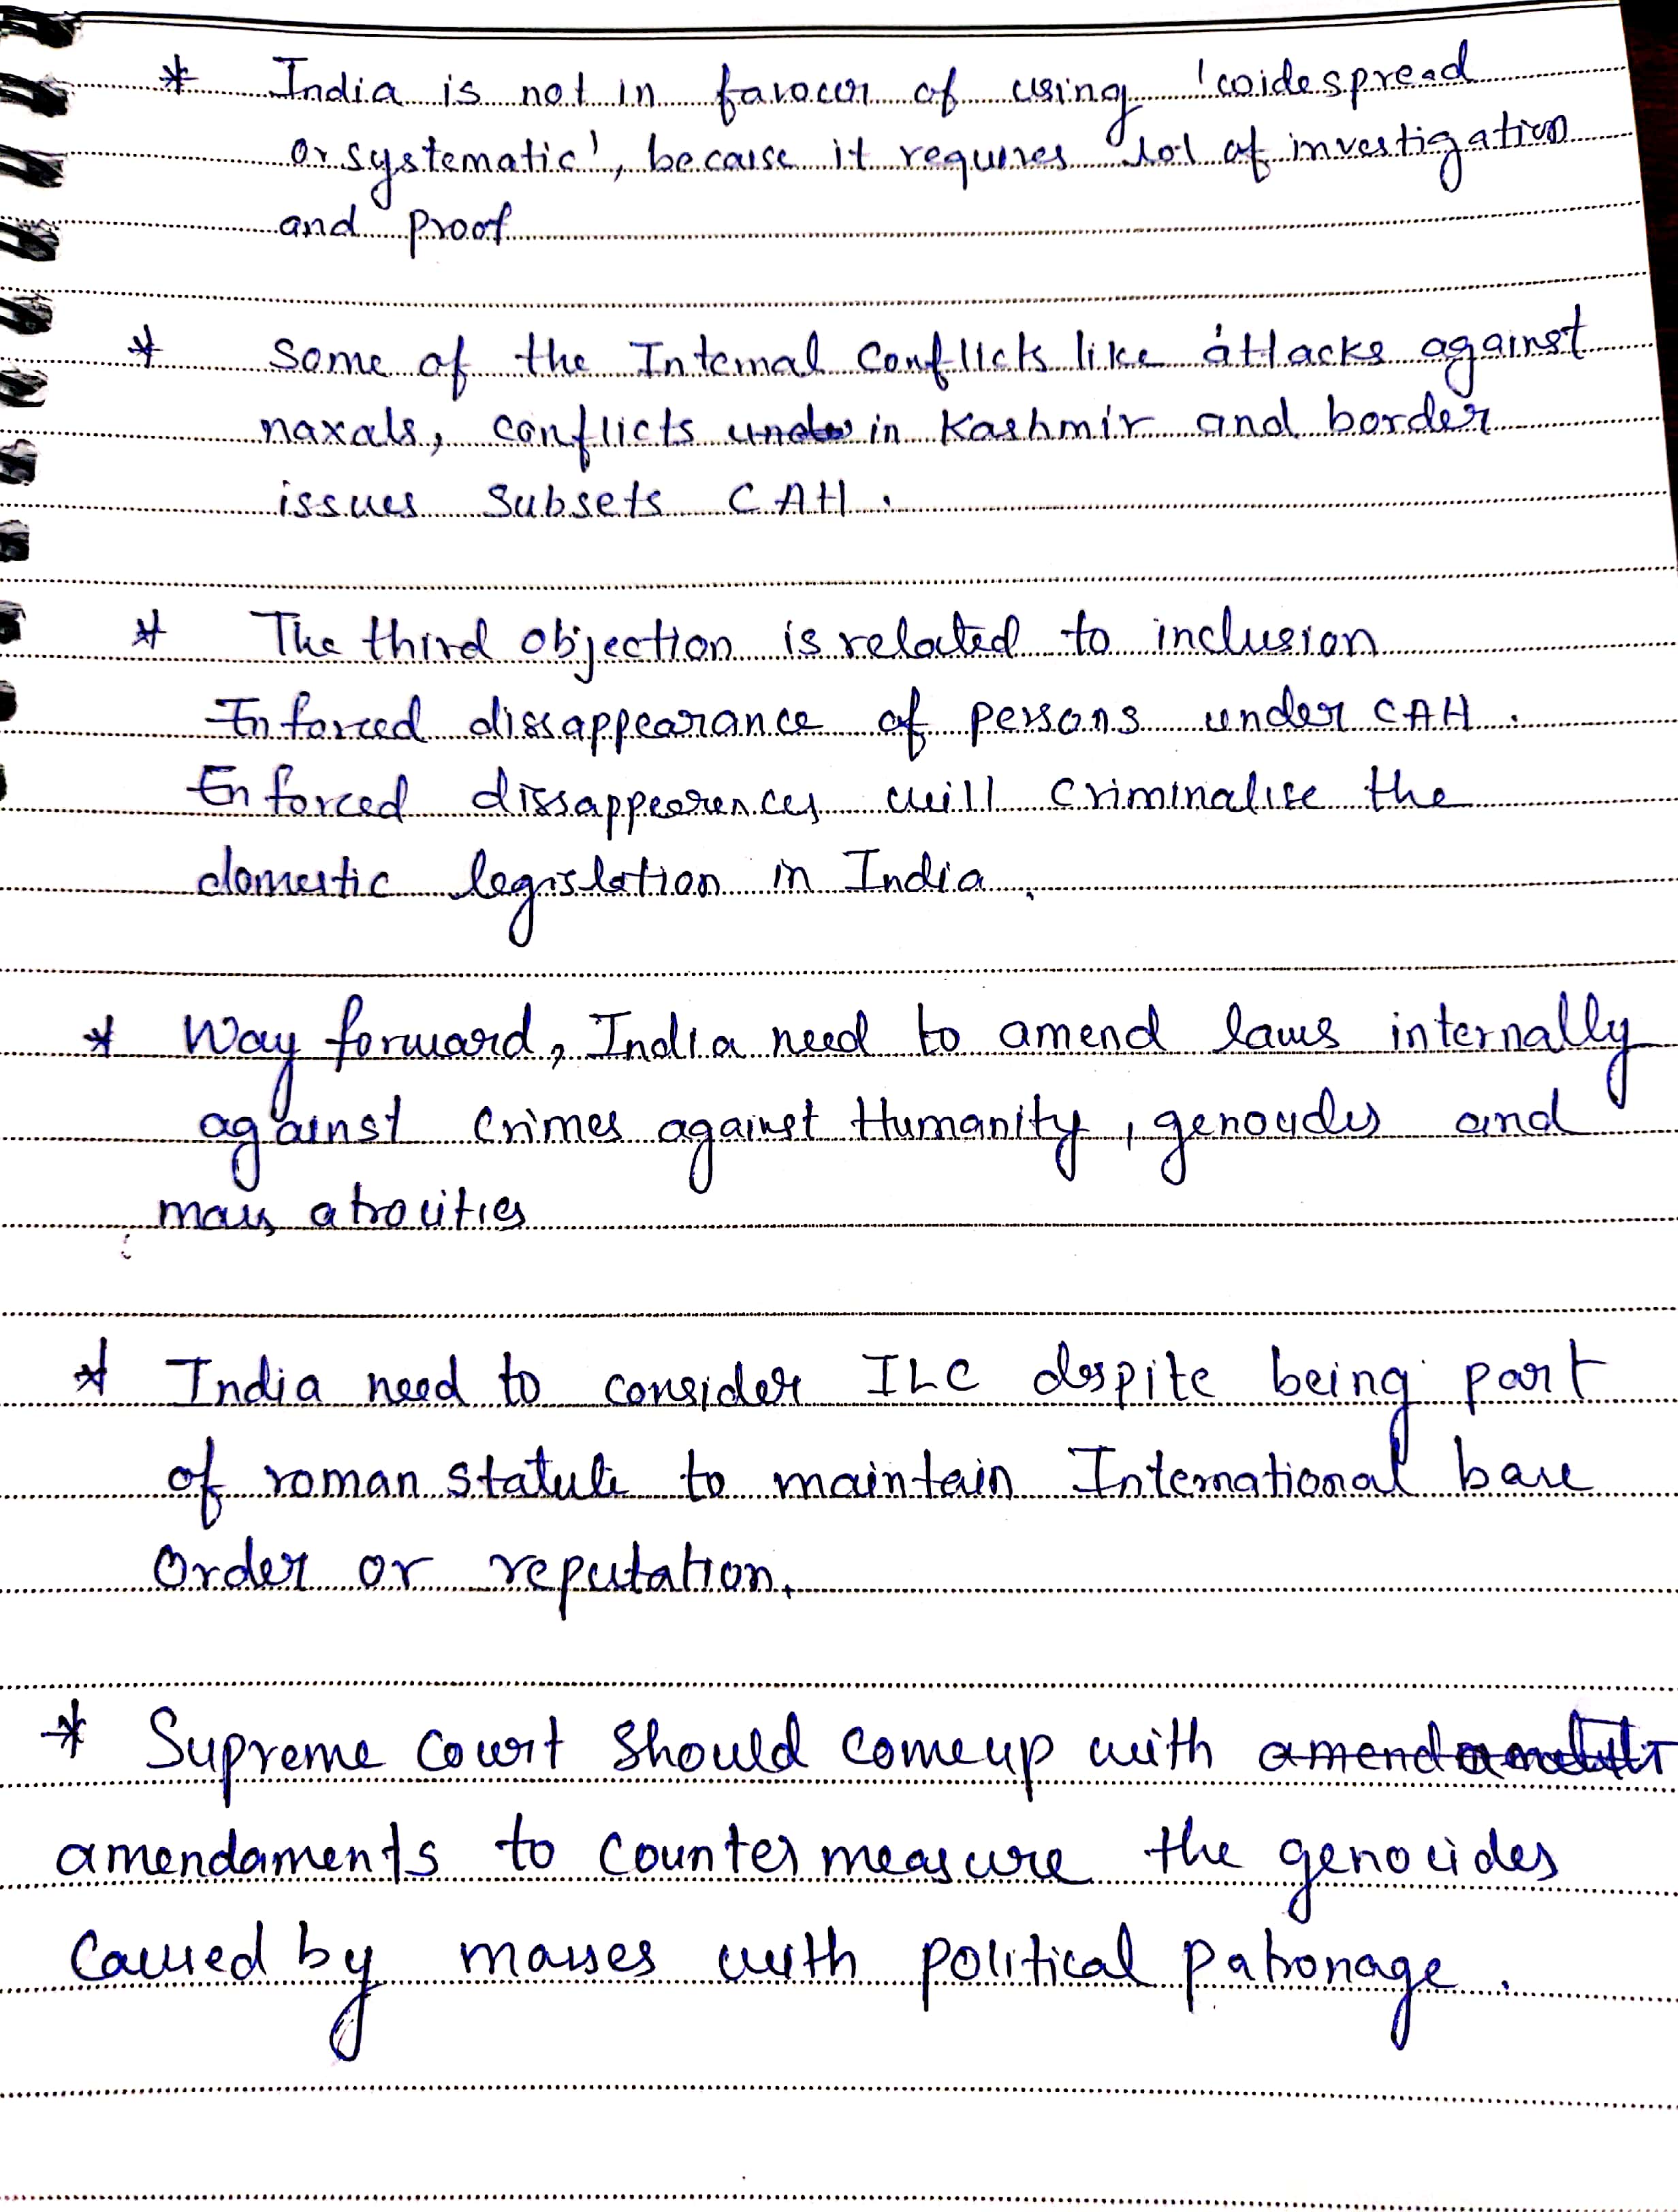 * India is not in favour of using 'widespread
or systematic', because it requires lot of investigation
and proof
* Some of the Internal Conflicts like attacks against
naxals, conflicts in Kashmir and border
issues subsets CAH.
* The third objection is related to inclusion
Enforced dissappearance of persons under CAH.
Enforced dissappearences will criminalise the
domestic legislation in India.
* Way forward, India need to amend laws internally
against Crimes against Humanity, genocides and
mass atrocities
* India need to consider ILC despite being part
of roman statute to maintain International base
Order or reputation.
* Supreme Court should comeup with
amendaments to counter measure the genocides
Caused by masses with political patronage.